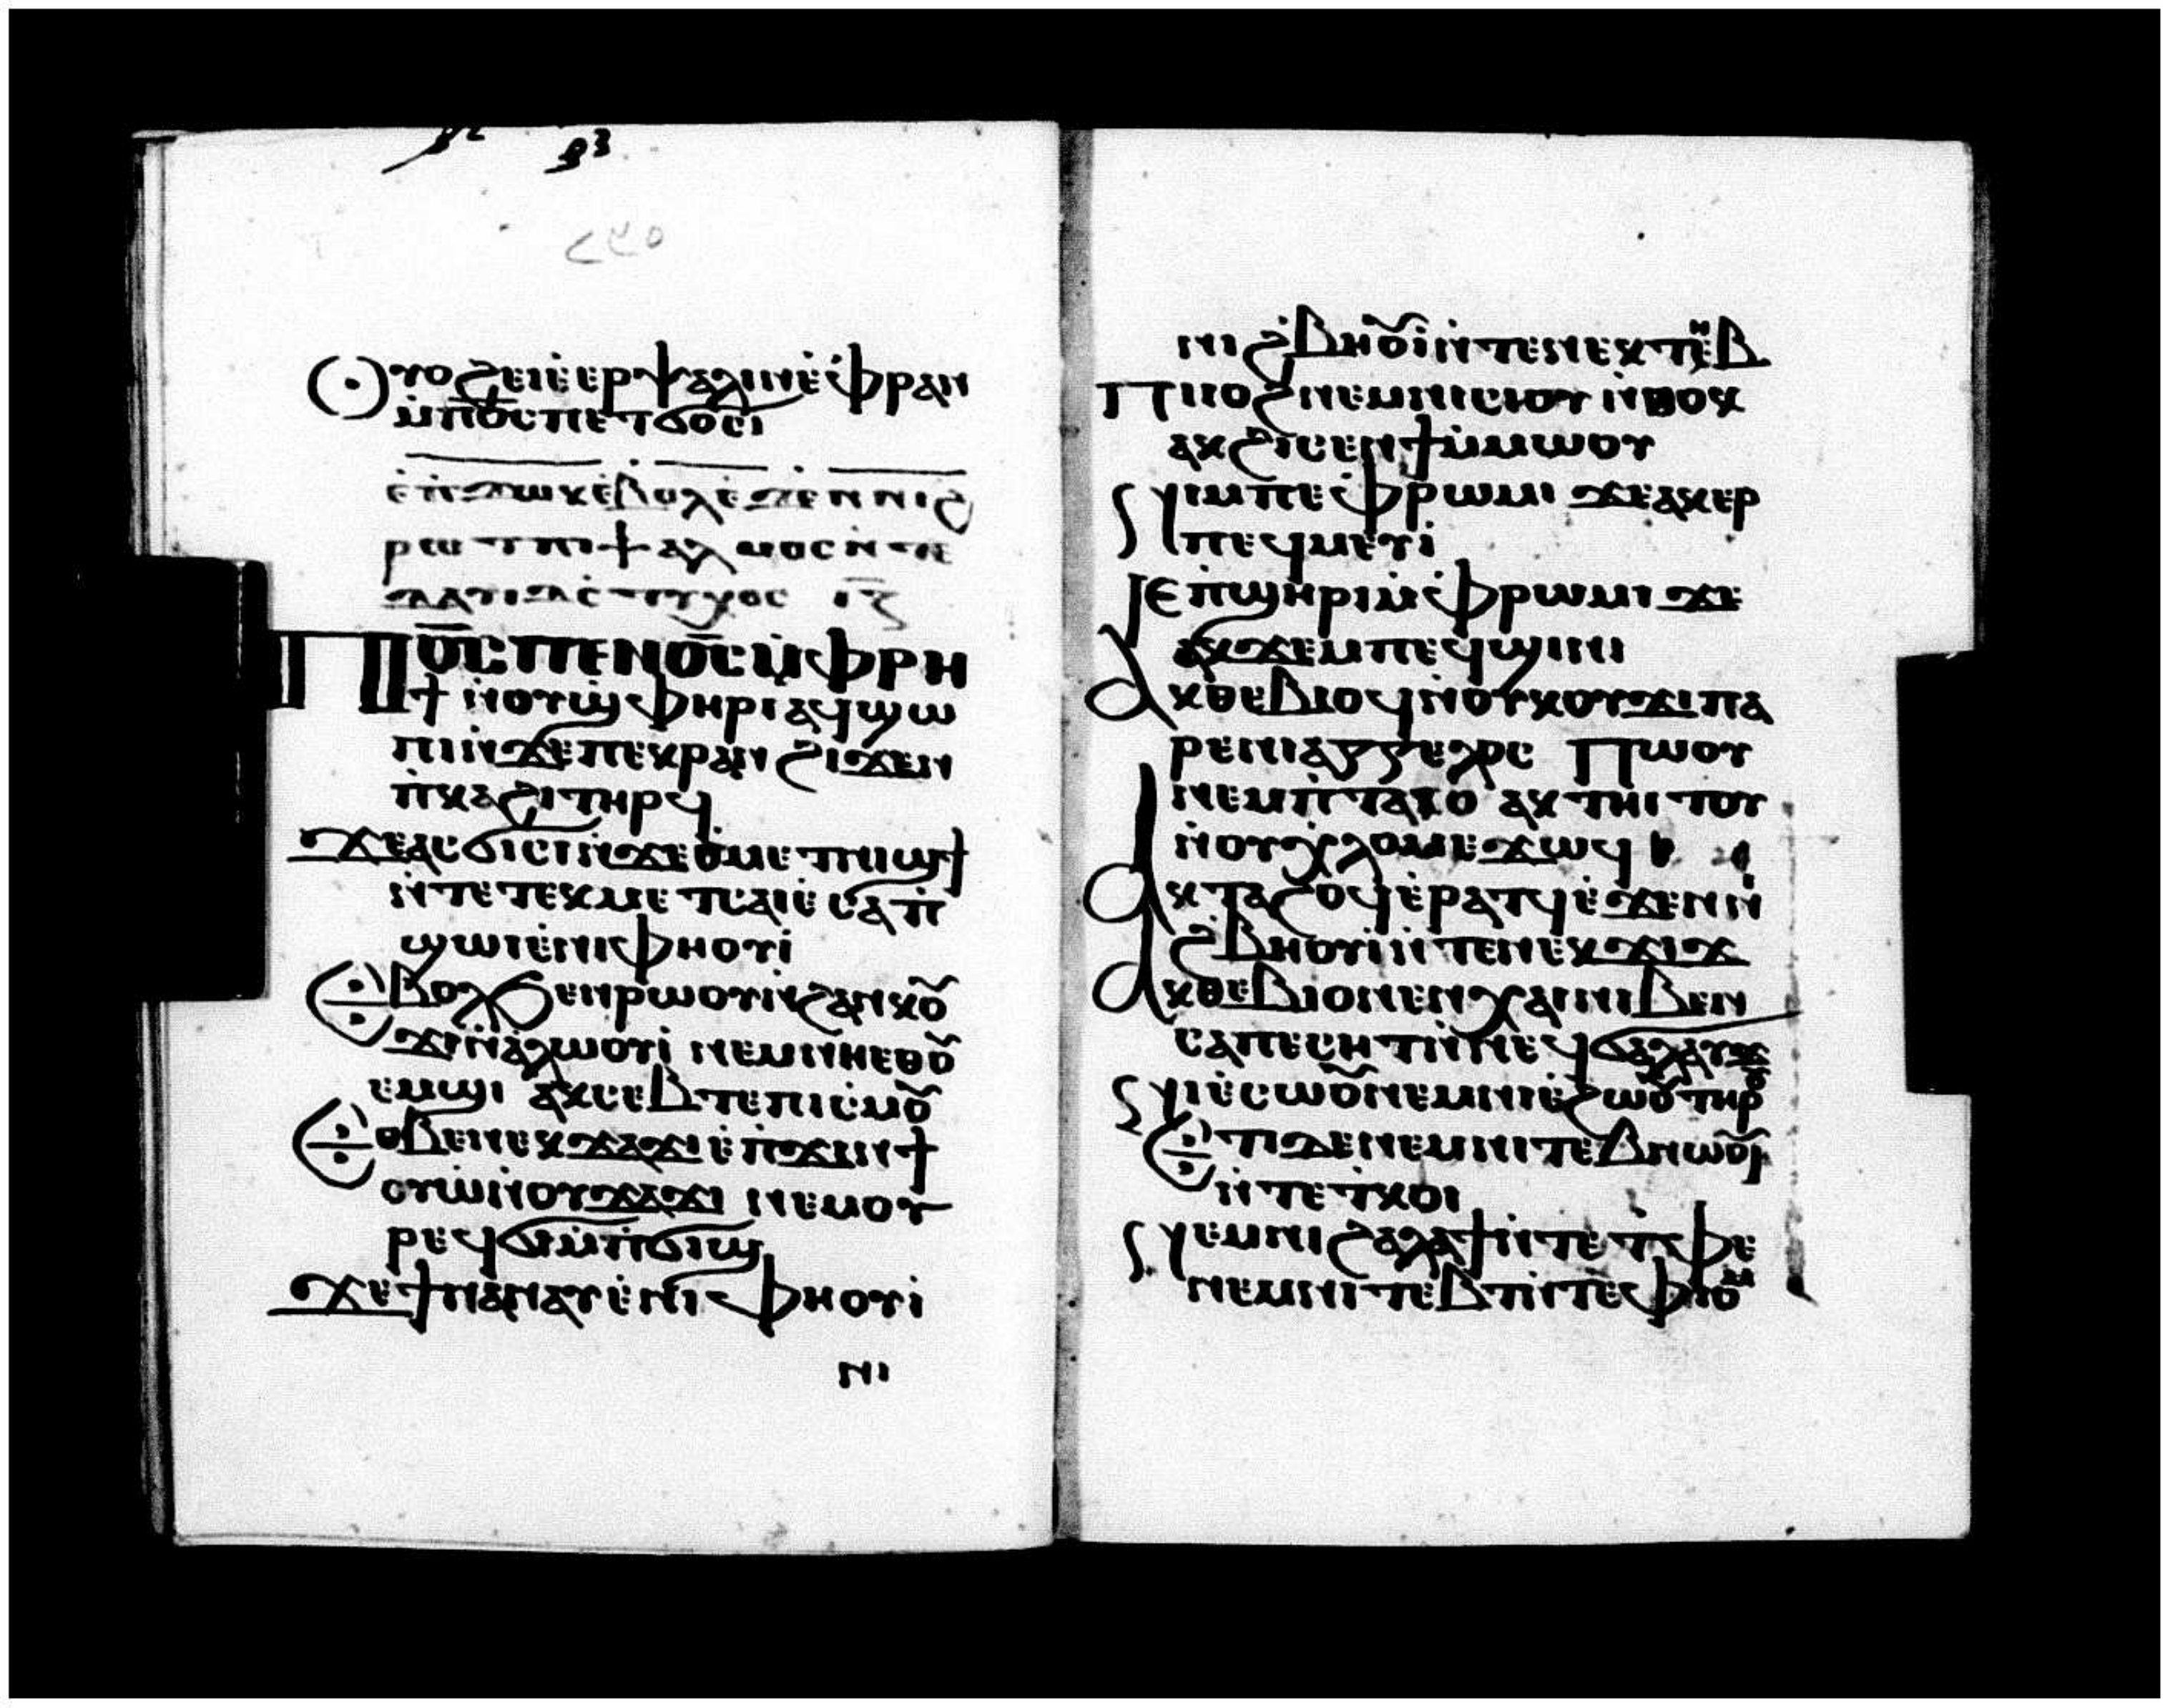 ⲟⲩⲟϩ ⲉⲓⲉ̀ⲉⲣⲯⲁⲗⲓⲛ ⲉ̀ⲫⲣⲁⲛ
ⲙ̀ⲡϭ̅ⲥ̅ ⲡⲉⲧϭⲟⲥⲓ
ⲉ̀ⲡϫⲱⲕ ⲉ̀ⲃⲟⲗ ⲉ̀ϫⲉⲛ ⲛⲓϩ
ⲣⲱⲧ ⲡⲓⲯⲁⲗⲙⲟⲥ ⲛ̀ⲧⲉ
ⲇⲁⲩⲓⲇ ⲥ̀ⲧⲩⲭⲟⲥ
ⲡϭ̅ⲥ̅ ⲡⲉⲛϭ̅ⲥ̅ ⲙ̀ⲫⲣⲏ
ϯ ⲛ̀ⲟⲩϣⲫⲏⲣⲓ ⲁϥϣⲱ
ⲡⲓ ⲛ̀ϫⲉ ⲡⲉⲕⲣⲁⲛ ϩⲓϫⲉⲛ
ⲡ̀ⲕⲁϩⲓ ⲧⲏⲣϥ
ϫⲉ ⲁⲥϭⲓⲥⲓ ⲛ̀ϫⲉ ⲑ̀ⲙⲉⲧⲛⲓϣϯ
ⲛ̀ⲧⲉ ⲧⲉⲕⲙⲉⲧⲥⲁⲓⲉ̀ ⲥⲁⲡ̀
ϣⲱⲓ ⲉ̀ⲛⲓⲫⲏⲟⲩⲓ̀
ⲉ̀ⲃⲟⲗ ϧⲉⲛ ⲣⲱⲟⲩ ⲛ̀ϩⲁⲛⲕⲟⲩ
ϫⲓ ⲛ̀ⲁ̀ⲗⲱⲟⲩⲓ̀ ⲛⲉⲙ ⲛⲏⲉⲑⲟⲩ
ⲉⲙϭⲓ ⲁⲕⲥⲉⲃⲧⲉ ⲡⲓⲥ̀ⲙⲟⲩ
ⲉⲑⲃⲉ ⲛⲉⲕϫⲁϫⲓ ⲉ̀ⲡ̀ϫⲓⲛϯ
ⲟⲩⲱ̀ ⲛ̀ⲟⲩϫⲁϫⲓ ⲛⲉⲙ ⲟⲩ
ⲣⲉϥϭⲓⲙ̀ⲡ̀ϭⲓϣ
ϫⲉ ϯⲛⲁⲛⲁⲩ ⲉ̀ⲛⲓⲫⲏⲟⲩⲓ̀
ⲛⲓ
ⲛⲓϩ̀ⲃⲏⲟⲩⲓ̀ ⲛ̀ⲧⲉ ⲛⲉⲕⲧⲏⲃ
ⲡⲓⲓⲟϩ ⲛⲉⲙ ⲛⲓⲥⲓⲟⲩ ⲛ̀ⲑⲟⲕ
ⲁⲕϩⲓⲥⲉⲛϯ ⲙ̀ⲙⲱⲟⲩ
ⲛⲓⲙ ⲡⲉ ⲫ̀ⲣⲱⲙⲓ ϫⲉ ⲁⲕⲉⲣ
ⲡⲉϥⲙⲉⲩⲓ̀
ⲓⲉ ⲡ̀ϣⲏⲣⲓ ⲙ̀ⲫ̀ⲣⲱⲙⲓ ϫⲉ
ⲁⲕϫⲉⲙⲡⲉϥϣⲓⲛⲓ
ⲁⲕⲑⲉⲃⲓⲟϥ ⲛ̀ⲟⲩⲕⲟⲩϫⲓ ⲡⲁ
ⲣⲉ ⲛⲓⲁⲅⲅⲉⲗⲟⲥ ⲡⲱⲟⲩ
ⲛⲉⲙ ⲡ̀ⲧⲁⲓⲟ ⲁⲕⲧⲏⲓⲧⲟⲩ
ⲛ̀ⲟⲩⲭ̀ⲗⲟⲙ ⲉϫⲱϥ
ⲁⲕⲧⲁϩⲟϥ ⲉ̀ⲣⲁⲧϥ ⲉ̀ϫⲉⲛ ⲛⲓ
ϩ̀ⲃⲏⲟⲩⲓ̀ ⲛ̀ⲧⲉ ⲛⲉⲕϫⲓϫ
ⲁⲕⲑⲉⲃⲓⲟ ⲛⲉⲛⲭⲁⲓ ⲛⲓⲃⲉⲛ
ⲥⲁⲡⲉⲥⲏⲧ ⲛ̀ⲛⲉϥϭⲁⲗⲁⲩϫ
ⲛⲓⲉ̀ⲥⲱⲟⲩ ⲛⲉⲙ ⲛⲓⲉ̀ϩⲱⲟⲩ ⲧⲏⲣⲟⲩ
ⲉⲧⲓ ⲇⲉ ⲛⲉⲙ ⲛⲓⲧⲉⲃⲛⲱⲟⲩⲓ
ⲛ̀ⲧⲉ ⲧ̀ⲕⲟⲓ
ⲛⲉⲙ ⲛⲓϩⲁⲗⲁϯ ⲛ̀ⲧⲉ ⲧ̀ⲫⲉ
ⲛⲉⲙ ⲛⲓⲧⲉⲃⲧ ⲛ̀ⲧⲉ ⲫ̀ⲓⲟⲙ